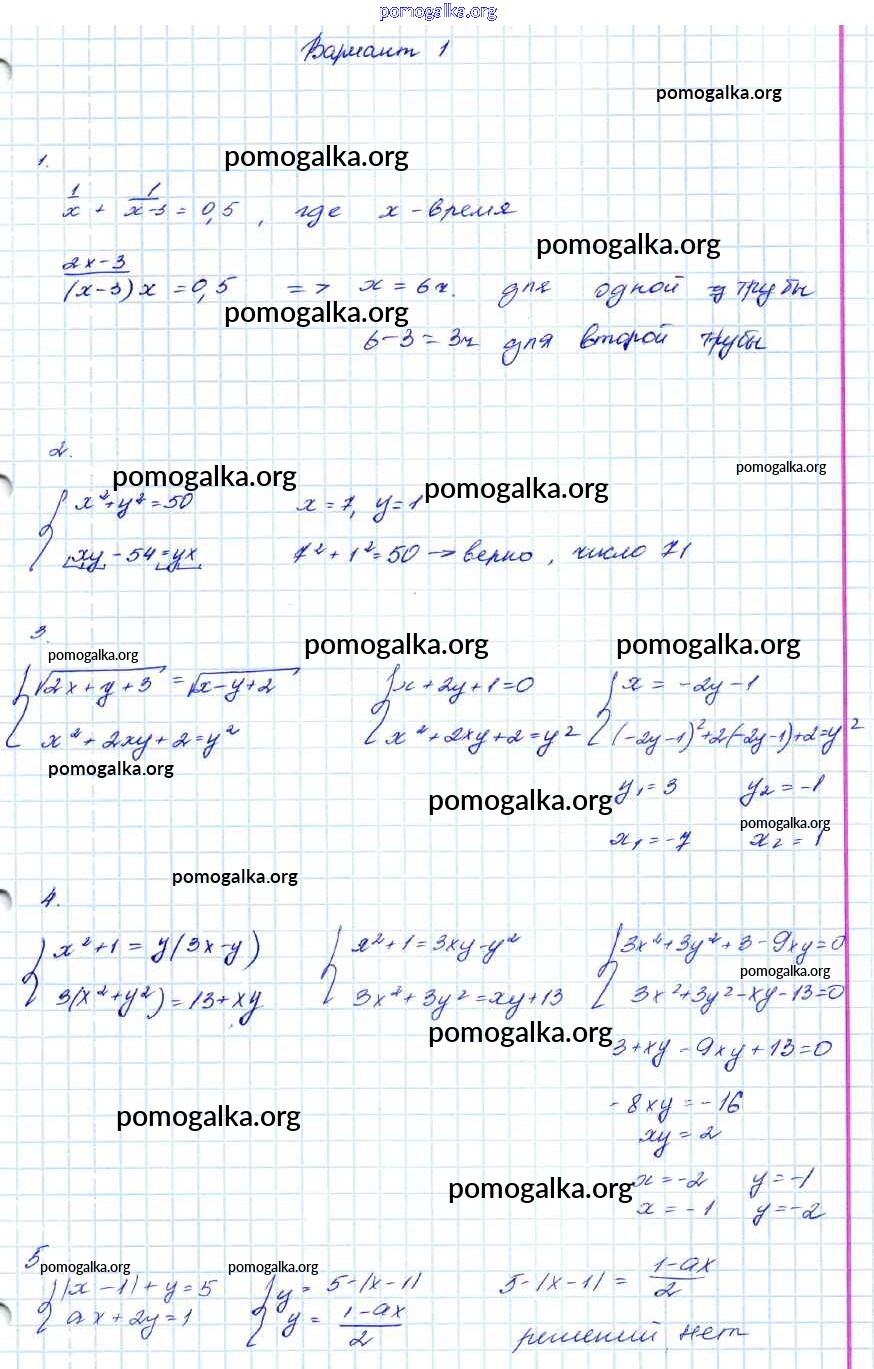 pomogalka.org
Вариант 1
pomogalka.org
1.
pomogalka.org
1/x + 1/(x-3) = 0,5 , где x - время
pomogalka.org
(2x-3)/((x-3)x) = 0,5 => x = 6ч. для одной трубы
pomogalka.org
6-3 = 3ч для второй трубы
2.
pomogalka.org
pomogalka.org
pomogalka.org
{ x²+y²=50 x = 7, y=1
xy - 54 = yx 7² + 1² = 50 → верно , число 71
3.
pomogalka.org
pomogalka.org
pomogalka.org
{ √2x+y+3 = √x-y+2 { x+2y+1=0 { x = -2y-1
x² + 2xy + 2 = y² x² + 2xy + 2 = y² (-2y-1)²+2(-2y-1)+2=y²
pomogalka.org
pomogalka.org
y₁ = 3 y₂ = -1
pomogalka.org
x₁ = -7 x₂ = 1
pomogalka.org
4.
{ x²+1 = y(3x-y) { x²+1 = 3xy-y² { 3x²+3y²+3-9xy=0
pomogalka.org
3(x²+y²) = 13+xy 3x²+3y²=xy+13 3x²+3y²-xy-13=0
pomogalka.org
3+xy-9xy+13=0
-8xy = -16
pomogalka.org
xy = 2
pomogalka.org
x = -2 y = -1
x = -1 y = -2
5
pomogalka.org
pomogalka.org
{ |x-1|+y=5 { y = 5-|x-1| 5-|x-1| = (1-ax)/2
ax+2y=1 y = (1-ax)/2
решений нет